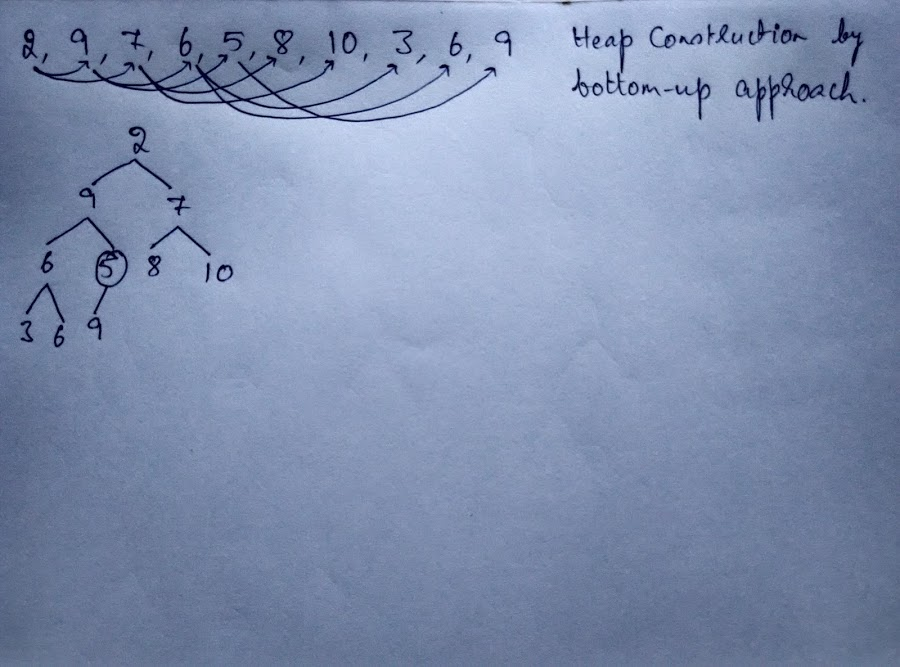 2, 9, 7, 6, 5, 8, 10, 3, 6, 9
Heap Construction by
bottom-up approach.
2
9 7
6 5 8 10
3 6 9